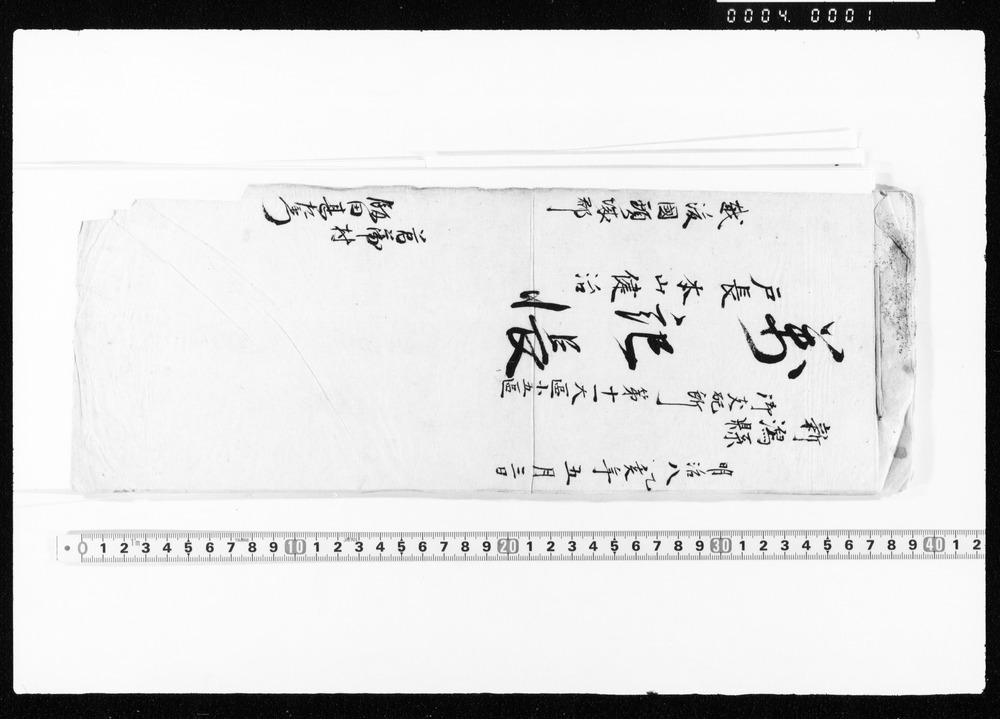 0004. 0001
明治八乙亥年五月三日
新潟縣
御支配所 第十一大區小五區
萬記帳
戸長 本山健治
越後國頸城郡
菖蒲村
飯田
0 1 2 3 4 5 6 7 8 9 10 1 2 3 4 5 6 7 8 9 20 1 2 3 4 5 6 7 8 9 30 1 2 3 4 5 6 7 8 9 40 1 2